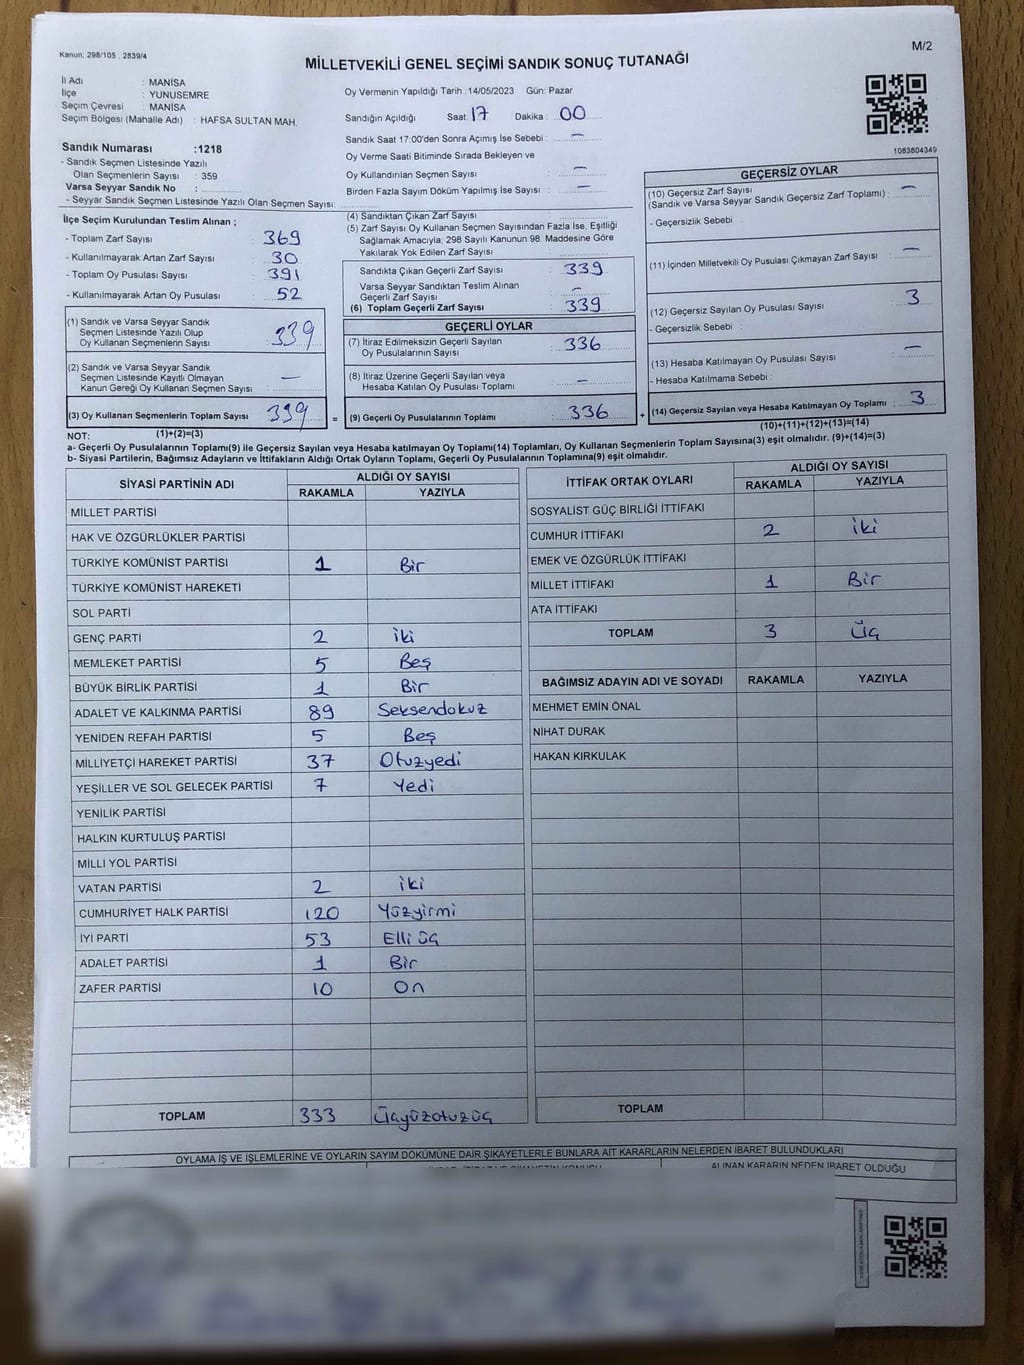 Kanun: 298/105 . 2839/4
M/2
MİLLETVEKİLİ GENEL SEÇİMİ SANDIK SONUÇ TUTANAĞI
İl Adı : MANİSA
İlçe : YUNUSEMRE
Seçim Çevresi : MANİSA
Seçim Bölgesi (Mahalle Adı) : HAFSA SULTAN MAH.
Oy Vermenin Yapıldığı Tarih : 14/05/2023 Gün: Pazar
Sandığın Açıldığı Saat: 17 Dakika : 00
Sandık Saat 17:00'den Sonra Açımış İse Sebebi : —
Oy Verme Saati Bitiminde Sırada Bekleyen ve
Oy Kullandırılan Seçmen Sayısı : —
Birden Fazla Sayım Döküm Yapılmış İse Sayısı : —
1083804349
Sandık Numarası :1218
- Sandık Seçmen Listesinde Yazılı
Olan Seçmenlerin Sayısı : 359
Varsa Seyyar Sandık No :
- Seyyar Sandık Seçmen Listesinde Yazılı Olan Seçmen Sayısı:
İlçe Seçim Kurulundan Teslim Alınan ;
- Toplam Zarf Sayısı : 369
- Kullanılmayarak Artan Zarf Sayısı : 30
- Toplam Oy Pusulası Sayısı : 391
- Kullanılmayarak Artan Oy Pusulası : 52
(1) Sandık ve Varsa Seyyar Sandık
Seçmen Listesinde Yazılı Olup
Oy Kullanan Seçmenlerin Sayısı : 339
(2) Sandık ve Varsa Seyyar Sandık
Seçmen Listesinde Kayıtlı Olmayan
Kanun Gereği Oy Kullanan Seçmen Sayısı : —
(3) Oy Kullanan Seçmenlerin Toplam Sayısı : 339 =
(1)+(2)=(3)
(4) Sandıktan Çıkan Zarf Sayısı :
(5) Zarf Sayısı Oy Kullanan Seçmen Sayısından Fazla İse, Eşitliği
Sağlamak Amacıyla; 298 Sayılı Kanunun 98. Maddesine Göre
Yakılarak Yok Edilen Zarf Sayısı :
Sandıkta Çıkan Geçerli Zarf Sayısı : 339
Varsa Seyyar Sandıktan Teslim Alınan
Geçerli Zarf Sayısı : —
(6) Toplam Geçerli Zarf Sayısı : 339
GEÇERLİ OYLAR
(7) İtiraz Edilmeksizin Geçerli Sayılan
Oy Pusulalarının Sayısı : 336
(8) İtiraz Üzerine Geçerli Sayılan veya
Hesaba Katılan Oy Pusulası Toplamı : —
(9) Geçerli Oy Pusulalarının Toplamı : 336 +
GEÇERSİZ OYLAR
(10) Geçersiz Zarf Sayısı
(Sandık ve Varsa Seyyar Sandık Geçersiz Zarf Toplamı) : —
- Geçersizlik Sebebi :
(11) İçinden Milletvekili Oy Pusulası Çıkmayan Zarf Sayısı : —
(12) Geçersiz Sayılan Oy Pusulası Sayısı : 3
- Geçersizlik Sebebi :
(13) Hesaba Katılmayan Oy Pusulası Sayısı : —
- Hesaba Katılmama Sebebi :
(14) Geçersiz Sayılan veya Hesaba Katılmayan Oy Toplamı : 3
(10)+(11)+(12)+(13)=(14)
NOT:
a- Geçerli Oy Pusulalarının Toplamı(9) ile Geçersiz Sayılan veya Hesaba katılmayan Oy Toplamı(14) Toplamları, Oy Kullanan Seçmenlerin Toplam Sayısına(3) eşit olmalıdır. (9)+(14)=(3)
b- Siyasi Partilerin, Bağımsız Adayların ve İttifakların Aldığı Ortak Oyların Toplamı, Geçerli Oy Pusulalarının Toplamına(9) eşit olmalıdır.
SİYASİ PARTİNİN ADI ALDIĞI OY SAYISI
RAKAMLA YAZIYLA
MİLLET PARTİSİ
HAK VE ÖZGÜRLÜKLER PARTİSİ
TÜRKİYE KOMÜNİST PARTİSİ 1 Bir
TÜRKİYE KOMÜNİST HAREKETİ
SOL PARTİ
GENÇ PARTİ 2 iki
MEMLEKET PARTİSİ 5 Beş
BÜYÜK BİRLİK PARTİSİ 1 Bir
ADALET VE KALKINMA PARTİSİ 89 Seksendokuz
YENİDEN REFAH PARTİSİ 5 Beş
MİLLİYETÇİ HAREKET PARTİSİ 37 Otuzyedi
YEŞİLLER VE SOL GELECEK PARTİSİ 7 Yedi
YENİLİK PARTİSİ
HALKIN KURTULUŞ PARTİSİ
MİLLİ YOL PARTİSİ
VATAN PARTİSİ 2 iki
CUMHURİYET HALK PARTİSİ 120 Yüzyirmi
İYİ PARTİ 53 Elli üç
ADALET PARTİSİ 1 Bir
ZAFER PARTİSİ 10 On
TOPLAM 333 Üçyüzotuzüç
İTTİFAK ORTAK OYLARI ALDIĞI OY SAYISI
RAKAMLA YAZIYLA
SOSYALİST GÜÇ BİRLİĞİ İTTİFAKI
CUMHUR İTTİFAKI 2 iki
EMEK VE ÖZGÜRLÜK İTTİFAKI
MİLLET İTTİFAKI 1 Bir
ATA İTTİFAKI
TOPLAM 3 Üç
BAĞIMSIZ ADAYIN ADI VE SOYADI RAKAMLA YAZIYLA
MEHMET EMİN ÖNAL
NİHAT DURAK
HAKAN KIRKULAK
TOPLAM
OYLAMA İŞ VE İŞLEMLERİNE VE OYLARIN SAYIM DÖKÜMÜNE DAİR ŞİKAYETLERLE BUNLARA AİT KARARLARIN NELERDEN İBARET BULUNDUKLARI
ALINAN KARARIN NEDEN İBARET OLDUĞU